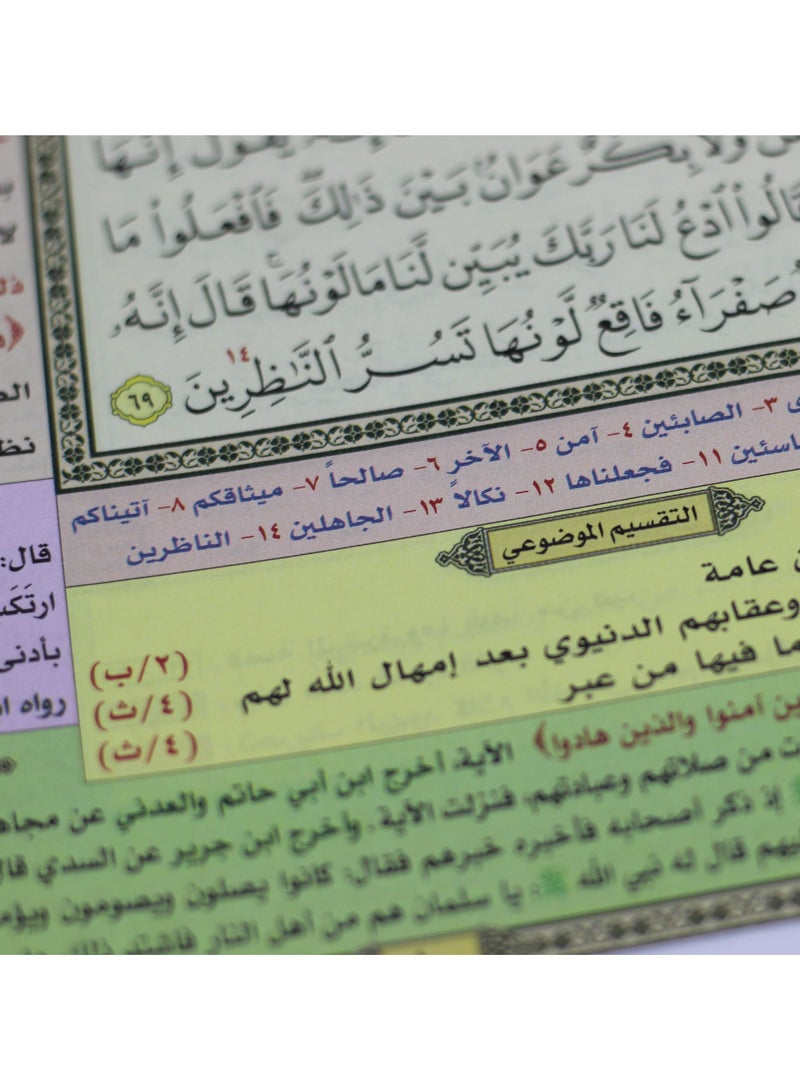 يَقُولُ إِنَّهَا
وَلَا بِكْرٌ عَوَانٌ بَيْنَ ذَٰلِكَ فَٱفْعَلُوا۟ مَا
قَالُوا۟ ٱدْعُ لَنَا رَبَّكَ يُبَيِّن لَّنَا مَا لَوْنُهَا ۚ قَالَ إِنَّهُۥ
صَفْرَآءُ فَاقِعٌ لَّوْنُهَا تَسُرُّ ٱلنَّٰظِرِينَ ١٤ ٦٩
٣- الصابئين ٤- آمن ٥- الآخر ٦- صالحاً ٧- ميثاقكم ٨- آتيناكم
١١- فجعلناها ١٢- نكالاً ١٣- الجاهلين ١٤- الناظرين
التقسيم الموضوعي
عامة
(٢/ب)
وعقابهم الدنيوي بعد إمهال الله لهم
(٤/ث)
ما فيها من عبر
(٤/ث)
آمنوا والذين هادوا﴾ الآية. أخرج ابن أبي حاتم والعدني عن
من صلاتهم وعبادتهم، فنزلت الآية. وأخرج ابن جرير عن السدي
إذ ذكر أصحابه فأخبره خبرهم فقال: كانوا يصلون ويصومون
قال له نبي الله ﷺ: يا سلمان هم من أهل النار فاشتد ذلك
قال:
بأدنى
رواه